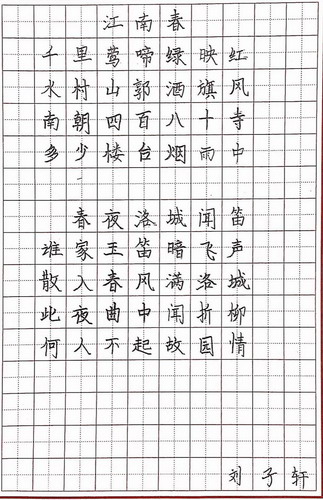 江南春
千里莺啼绿映红
水村山郭酒旗风
南朝四百八十寺
多少楼台烟雨中
春夜洛城闻笛
谁家玉笛暗飞声
散入春风满洛城
此夜曲中闻折柳
何人不起故园情
刘子轩